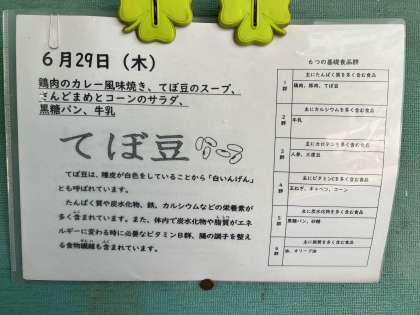 6月29日（木）
鶏肉のカレー風味焼き、てぼ豆のスープ、
さんどまめとコーンのサラダ、
黒糖パン、牛乳
てぼ豆
てぼ豆は、種皮が白色をしていることから「白いんげん」
とも呼ばれています。
たんぱく質や炭水化物、鉄、カルシウムなどの栄養素が
多く含まれています。また、体内で炭水化物や脂質がエネ
ルギーに変わる時に必要なビタミンB群、腸の調子を整え
る食物繊維も含まれています。
6つの基礎食品群
1群 主にたんぱく質を多く含む食品
鶏肉、豚肉、てぼ豆
2群 主にカルシウムを多く含む食品
牛乳
3群 主にカロテンを多く含む食品
人参、三度豆
4群 主にビタミンCを多く含む食品
玉ねぎ、キャベツ、コーン
5群 主に炭水化物を多く含む食品
黒糖パン、砂糖
6群 主に脂質を多く含む食品
油、オリーブ油